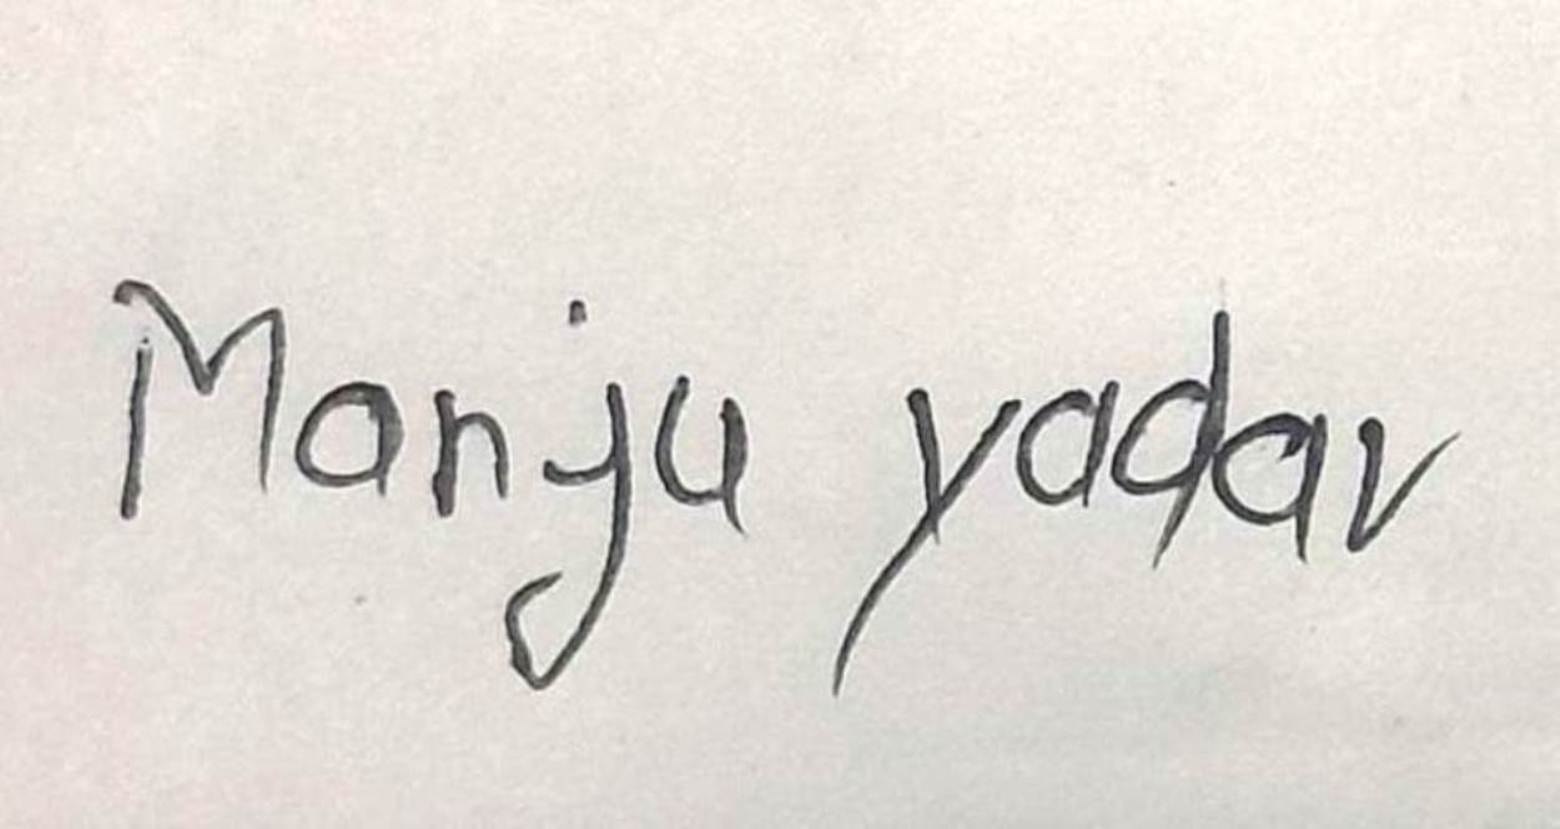 Manju yadav